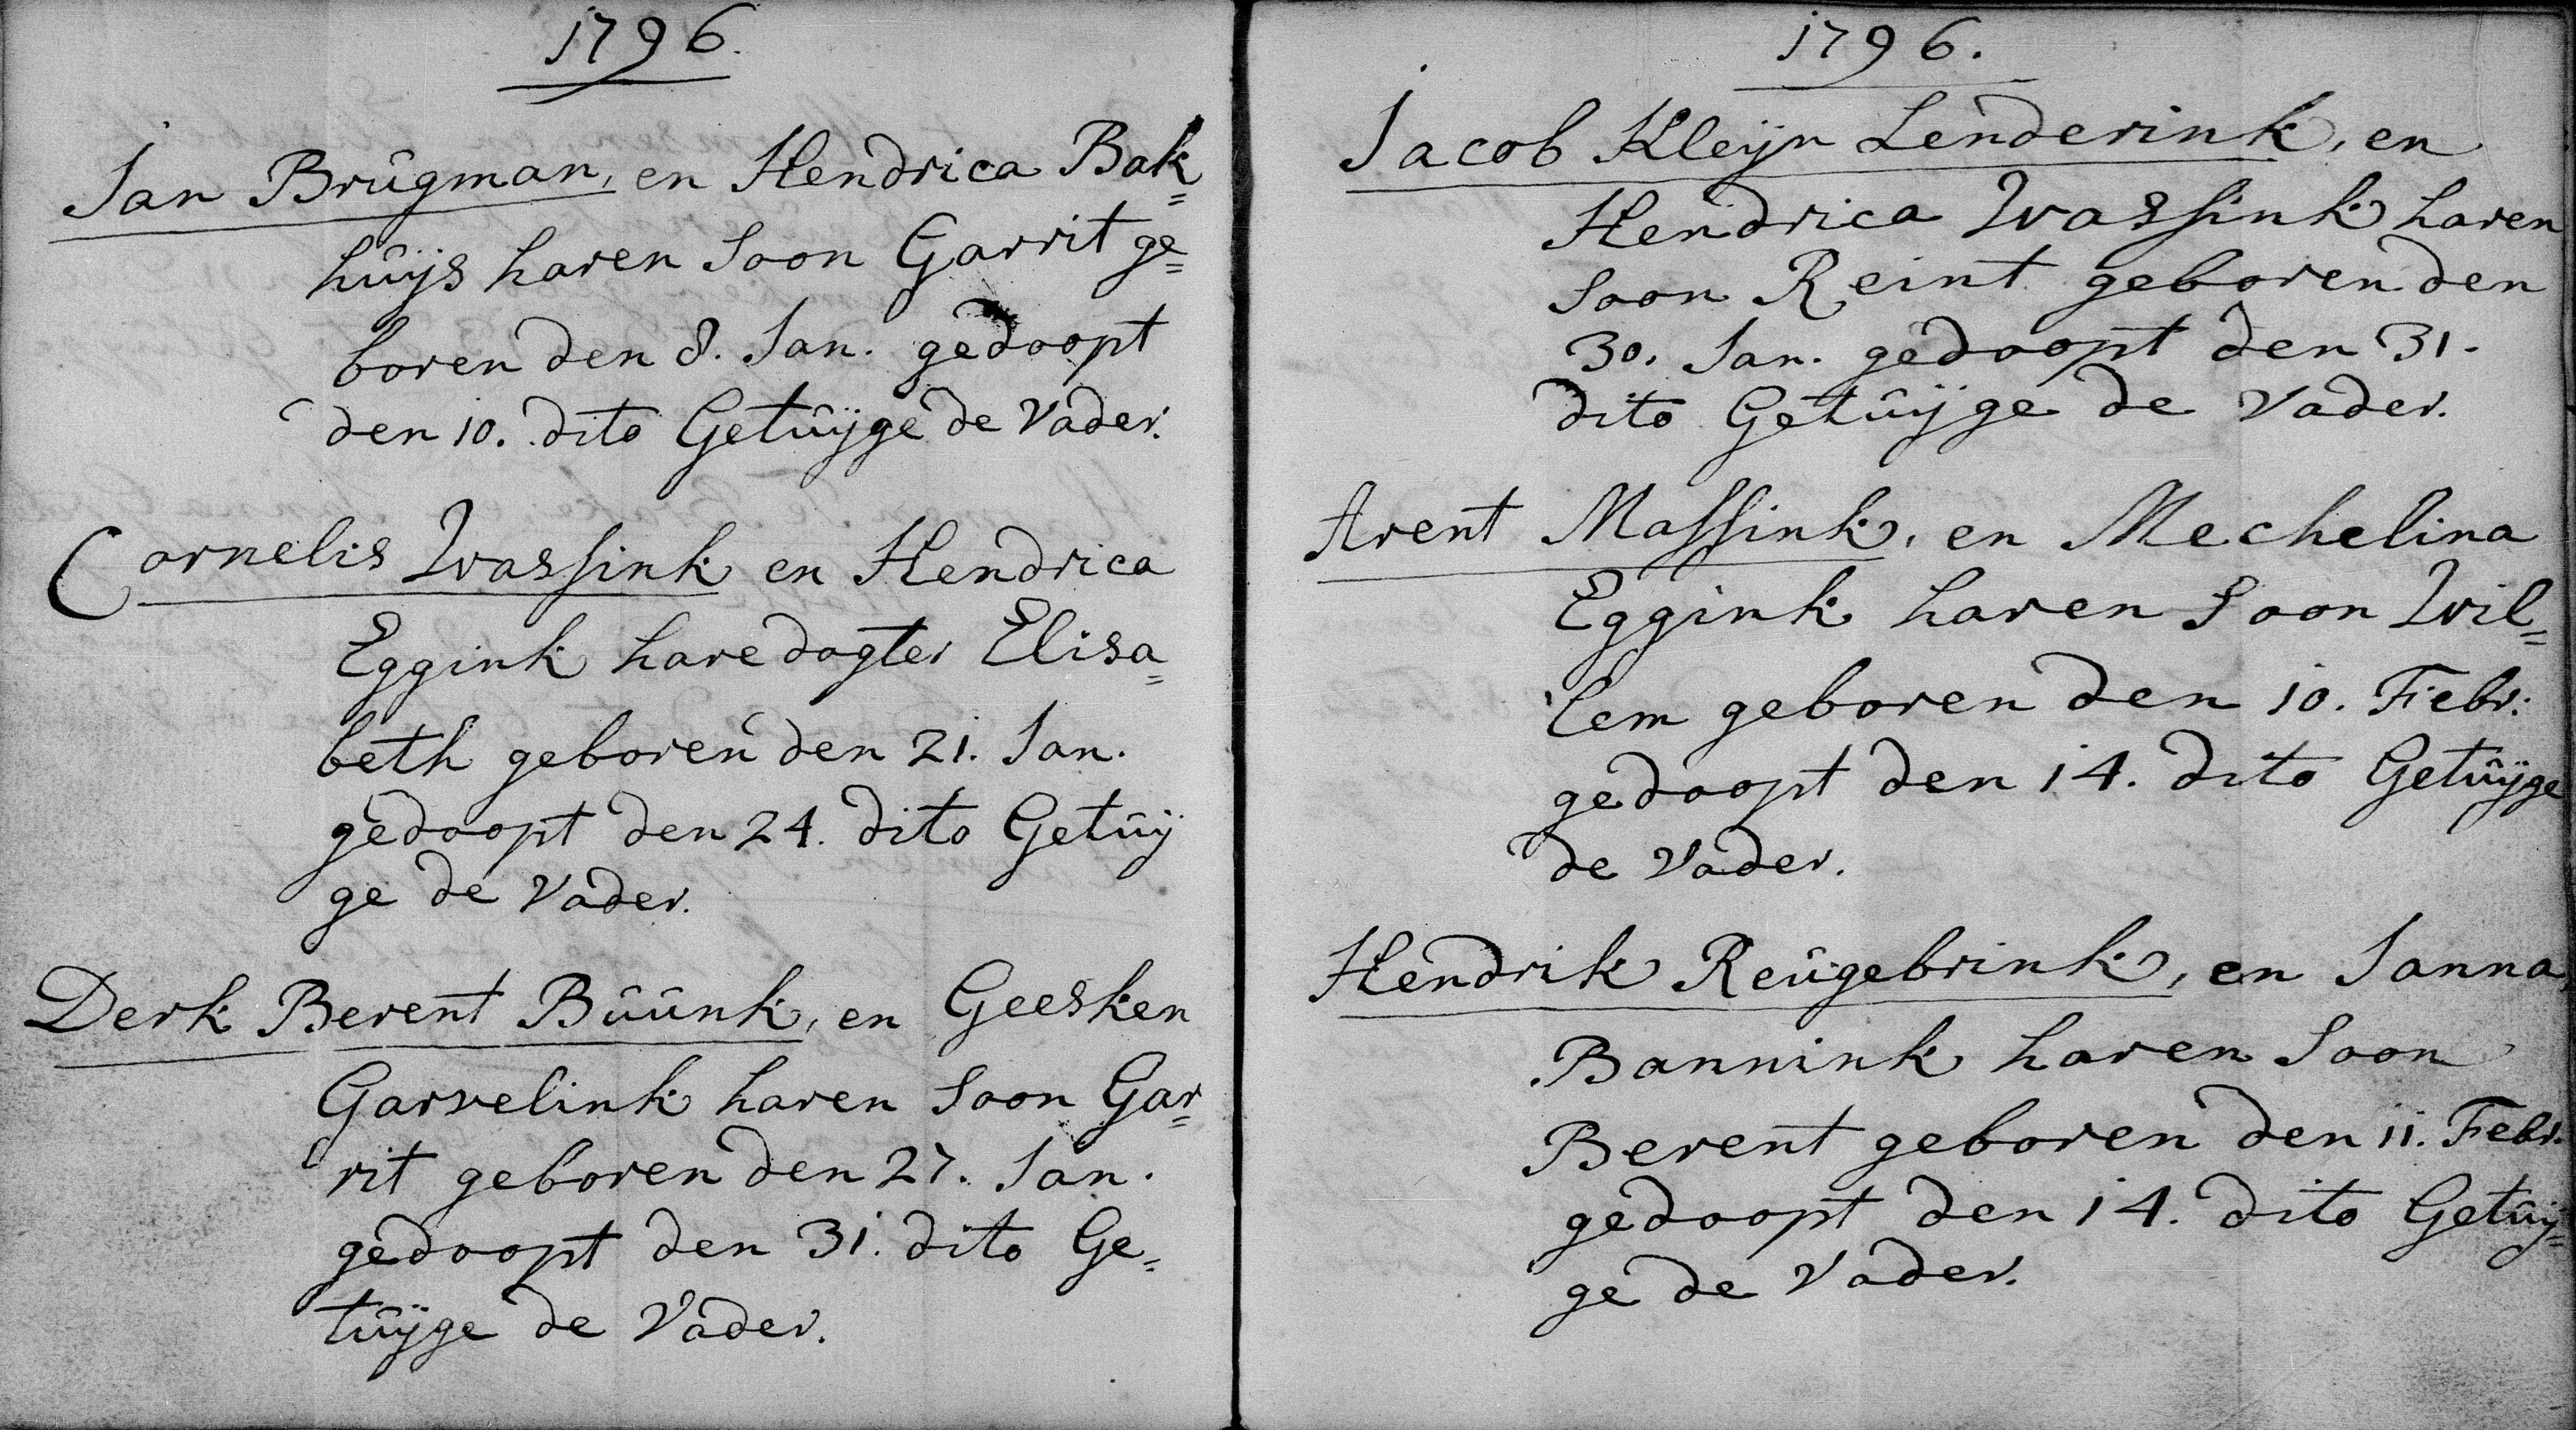 1796.
Jan Brûgman, en Hendrica Bak=
hûijs haren Soon Garrit ge=
boren den 8. Jan. gedoopt
den 10. dito Getûijge de Vader.
Cornelis Wassink en Hendrica
Eggink hare dogter Elisa=
beth geboren den 21. Jan.
gedoopt den 24. dito Getûij
ge de Vader.
Derk Berent Bûûnk, en Geesken
Garvelink haren Soon Gar=
rit geboren den 27. Jan.
gedoopt den 31. dito Ge=
tûijge de Vader.
1796.
Jacob Kleijn Lenderink, en
Hendrica Wassink haren
Soon Reint geboren den
30. Jan. gedoopt den 31.
dito Getûijge de Vader.
Arent Massink, en Mechelina
Eggink haren Soon Wil=
lem geboren den 10. Febr:
gedoopt den 14. dito Getûijge
de Vader.
Hendrik Reûgebrink, en Janna
Bannink haren Soon
Berent geboren den 11. Febr.
gedoopt den 14. dito Getûij=
ge de Vader.